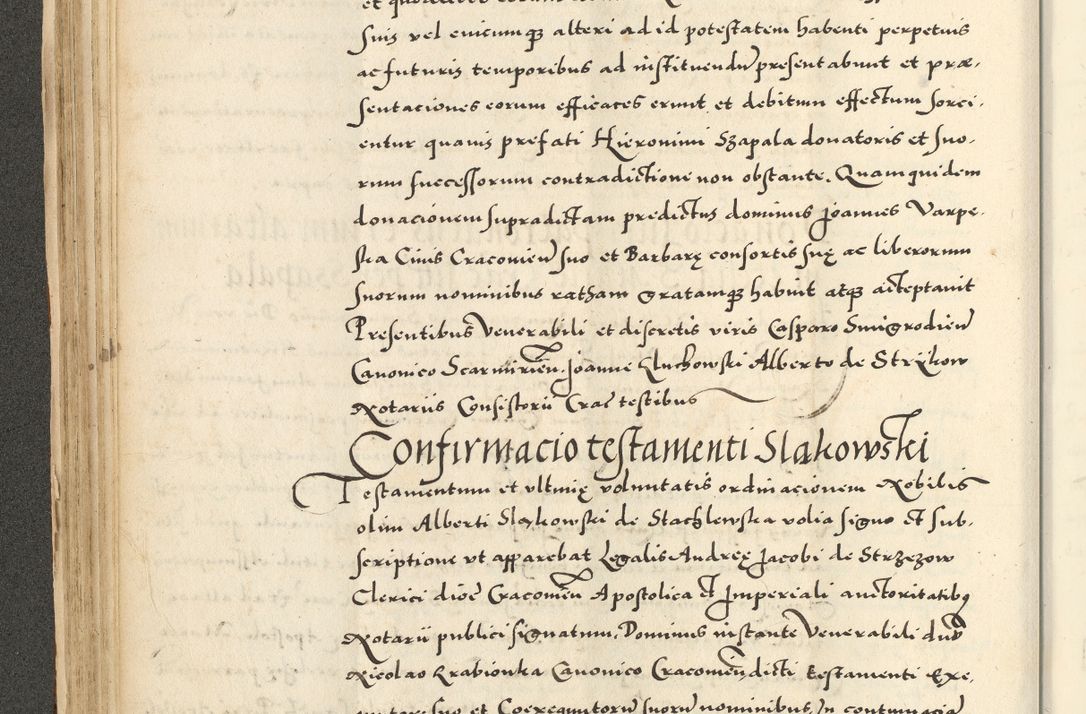 suis vel cuicumq3 alteri ad id potestatem habenti perpetuis
ac futuris temporibus ad instituendu presentabunt et præ-
sentaciones eorum efficaces erunt et debitum effectum sorci-
entur quavis prefati Hieronimi Szapala donatoris et suo-
rum successorum contradictione non obstante. Quamquidem
donacionem supradictam predictus dominus Joannes Varpe-
ska Civis Cracovien suo et Barbarę consortis suę ac liberorum
suorum nominibus ratham gratamq3 habuit atq3 acceptavit
Presentibus Venerabili et discretis viris Casparo Smigrodien
Canonico Scarmirien. Joanne Kluchowski Alberto de Strykow
Notariis Consistorii Crac testibus
Confirmacio testamenti Slakowski
Testamentum et ultimę voluntatis ordinacionem Nobilis
olim Alberti Slakowski de Stachlewska volia signo et sub-
scriptione ut apparebat Legalis Andreę Jacobi de Strzezow
Clerici dioc Cracovien Apostolica et Imperiali auctoritatibq
Notarii publici signatum. Dominus instante Venerabili dno
Nicolao Krabionka Canonico Cracovien dicti testamenti Exe-
cutore suo et Coexequutorum suorum nominibus, In contumacia